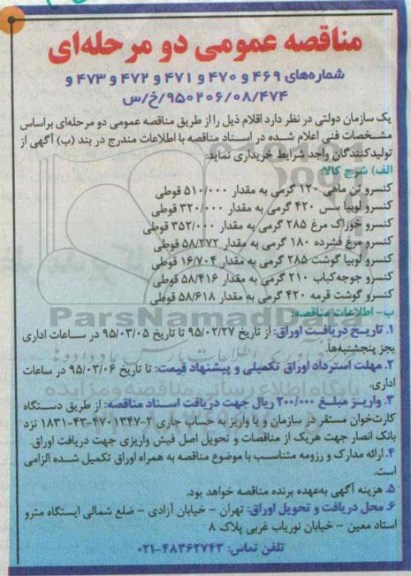 مناقصه عمومی دو مرحله‌ای
شماره‌های ۴۶۹ و ۴۷۰ و ۴۷۱ و ۴۷۲ و ۴۷۳ و
۹۵۰۲۰۶/۰۸/۴۷۴/خ/س
یک سازمان دولتی در نظر دارد اقلام ذیل را از طریق مناقصه عمومی دو مرحله‌ای براساس
مشخصات فنی اعلام شده در اسناد مناقصه با اطلاعات مندرج در بند (ب) آگهی از
تولیدکنندگان واجد شرایط خریداری نماید:
الف) شرح کالا:
کنسرو تن ماهی ۱۲۰ گرمی به مقدار ۵۱۰/۰۰۰ قوطی
کنسرو لوبیا سس ۴۲۰ گرمی به مقدار ۳۲۰/۰۰۰ قوطی
کنسرو خوراک مرغ ۲۸۵ گرمی به مقدار ۳۵۲/۰۰۰ قوطی
کنسرو مرغ فشرده ۱۸۰ گرمی به مقدار ۵۸/۲۷۲ قوطی
کنسرو لوبیا گوشت ۲۸۵ گرمی به مقدار ۱۶/۷۰۴ قوطی
کنسرو جوجه‌کباب ۲۱۰ گرمی به مقدار ۵۸/۴۱۶ قوطی
کنسرو گوشت قرمه ۴۲۰ گرمی به مقدار ۵۸/۶۱۸ قوطی
ب- اطلاعات مناقصه:
۱. تاریخ دریافت اوراق: از تاریخ ۹۵/۰۲/۲۷ تا تاریخ ۹۵/۰۳/۰۵ در ساعات اداری
بجز پنجشنبه‌ها.
۲. مهلت استرداد اوراق تکمیلی و پیشنهاد قیمت: تا تاریخ ۹۵/۰۳/۰۶ در ساعات
اداری.
۳. واریز مبلغ ۲۰۰/۰۰۰ ریال جهت دریافت اسناد مناقصه: از طریق دستگاه
کارت‌خوان مستقر در سازمان و یا واریز به حساب جاری ۲-۴۷۰۱۳۴۷-۴۳-۱۸۳۱ نزد
بانک انصار جهت هریک از مناقصات و تحویل اصل فیش واریزی جهت دریافت اوراق.
۴. ارائه مدارک و رزومه متناسب با موضوع مناقصه به همراه اوراق تکمیل شده الزامی
است.
۵. هزینه آگهی به‌عهده برنده مناقصه خواهد بود.
۶. محل دریافت و تحویل اوراق: تهران - خیابان آزادی - ضلع شمالی ایستگاه مترو
استاد معین - خیابان نوریاب غربی پلاک ۸
تلفن تماس: ۴۸۳۶۲۷۴۳-۰۲۱
ParsNamadData
پایگاه اطلاع رسانی مناقصه و مزایده